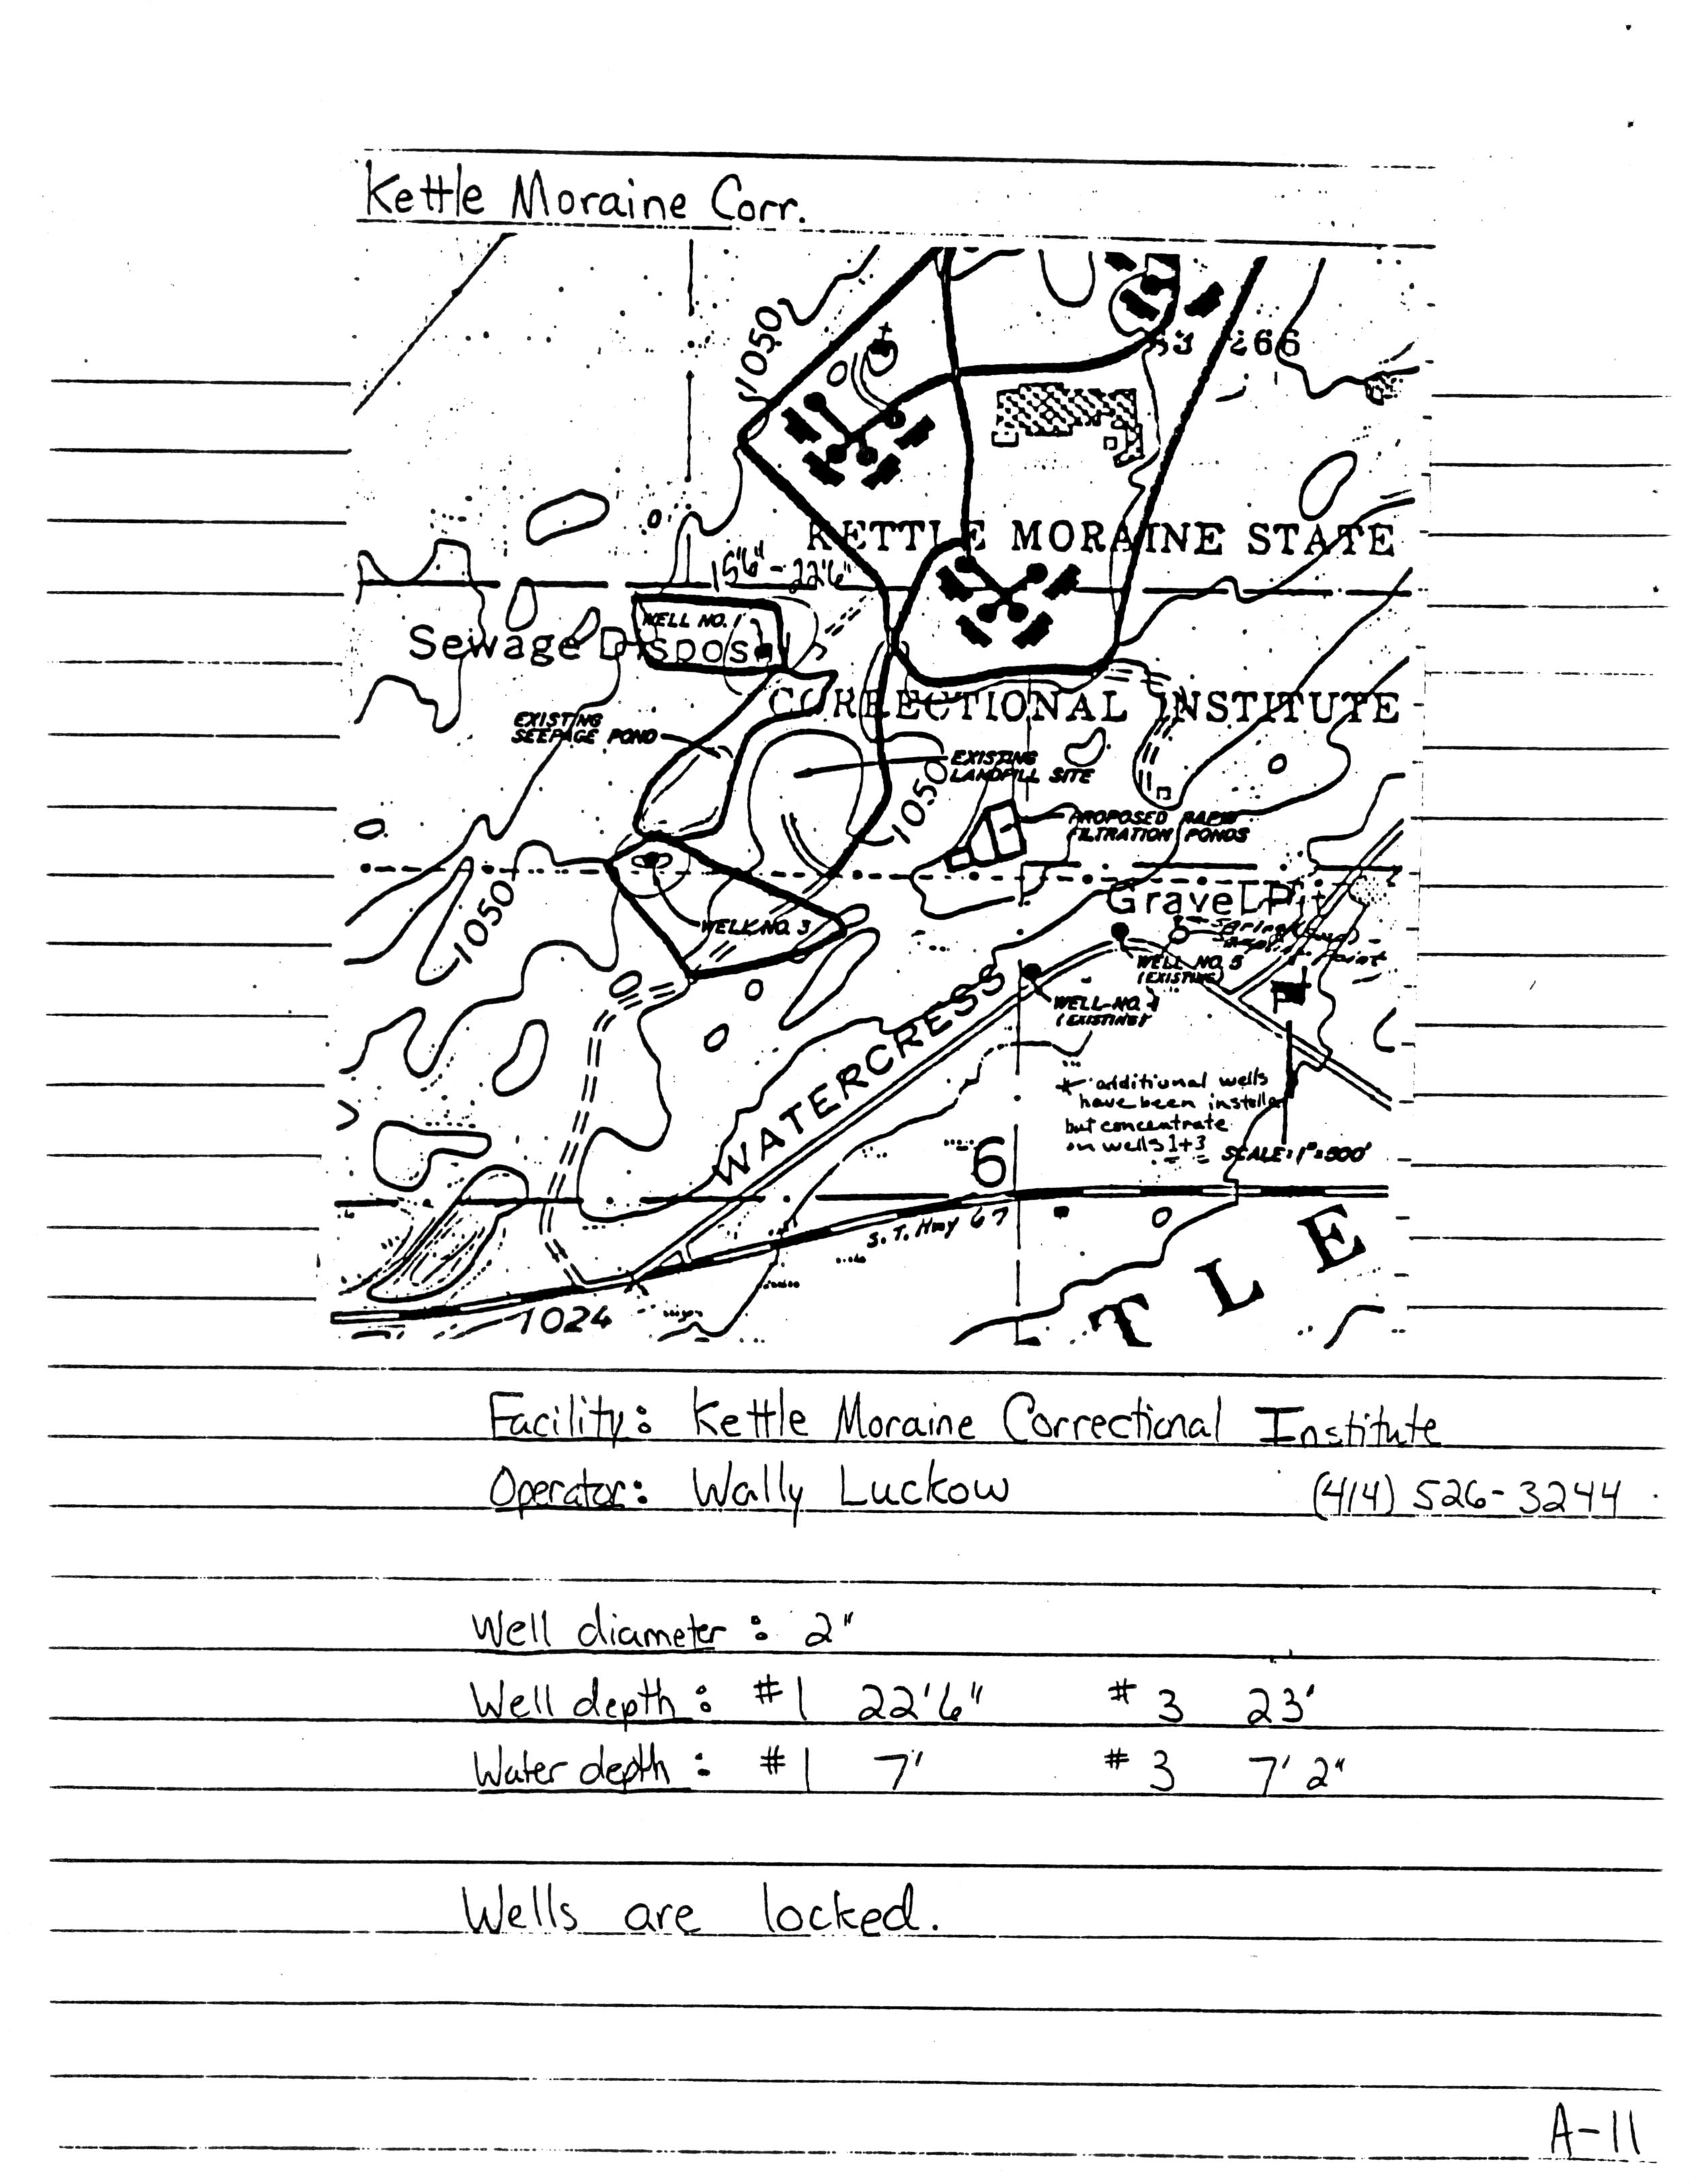 Kettle Moraine Corr.
1050
53 266
KETTLE MORAINE STATE
15'6" - 22'6"
WELL NO. 1
Sewage Disposal
CORRECTIONAL INSTITUTE
EXISTING
SEEPAGE POND
EXISTING
LANDFILL SITE
1050
PROPOSED RAPID
FILTRATION PONDS
1050
WELL NO. 3
Gravel Pit
Spring
WELL NO. 5
(EXISTING)
WELL NO. 4
(EXISTING)
WATERCRESS
* additional wells
have been installed
but concentrate
on wells 1+3
SCALE: 1"=500'
6
S.T. Hwy 67
1024
T L E
Facility: Kettle Moraine Correctional Institute
Operator: Wally Luckow (414) 526-3244
Well diameter: 2"
Well depth: #1 22'6" #3 23'
Water depth: #1 7' #3 7' 2"
Wells are locked.
A-11